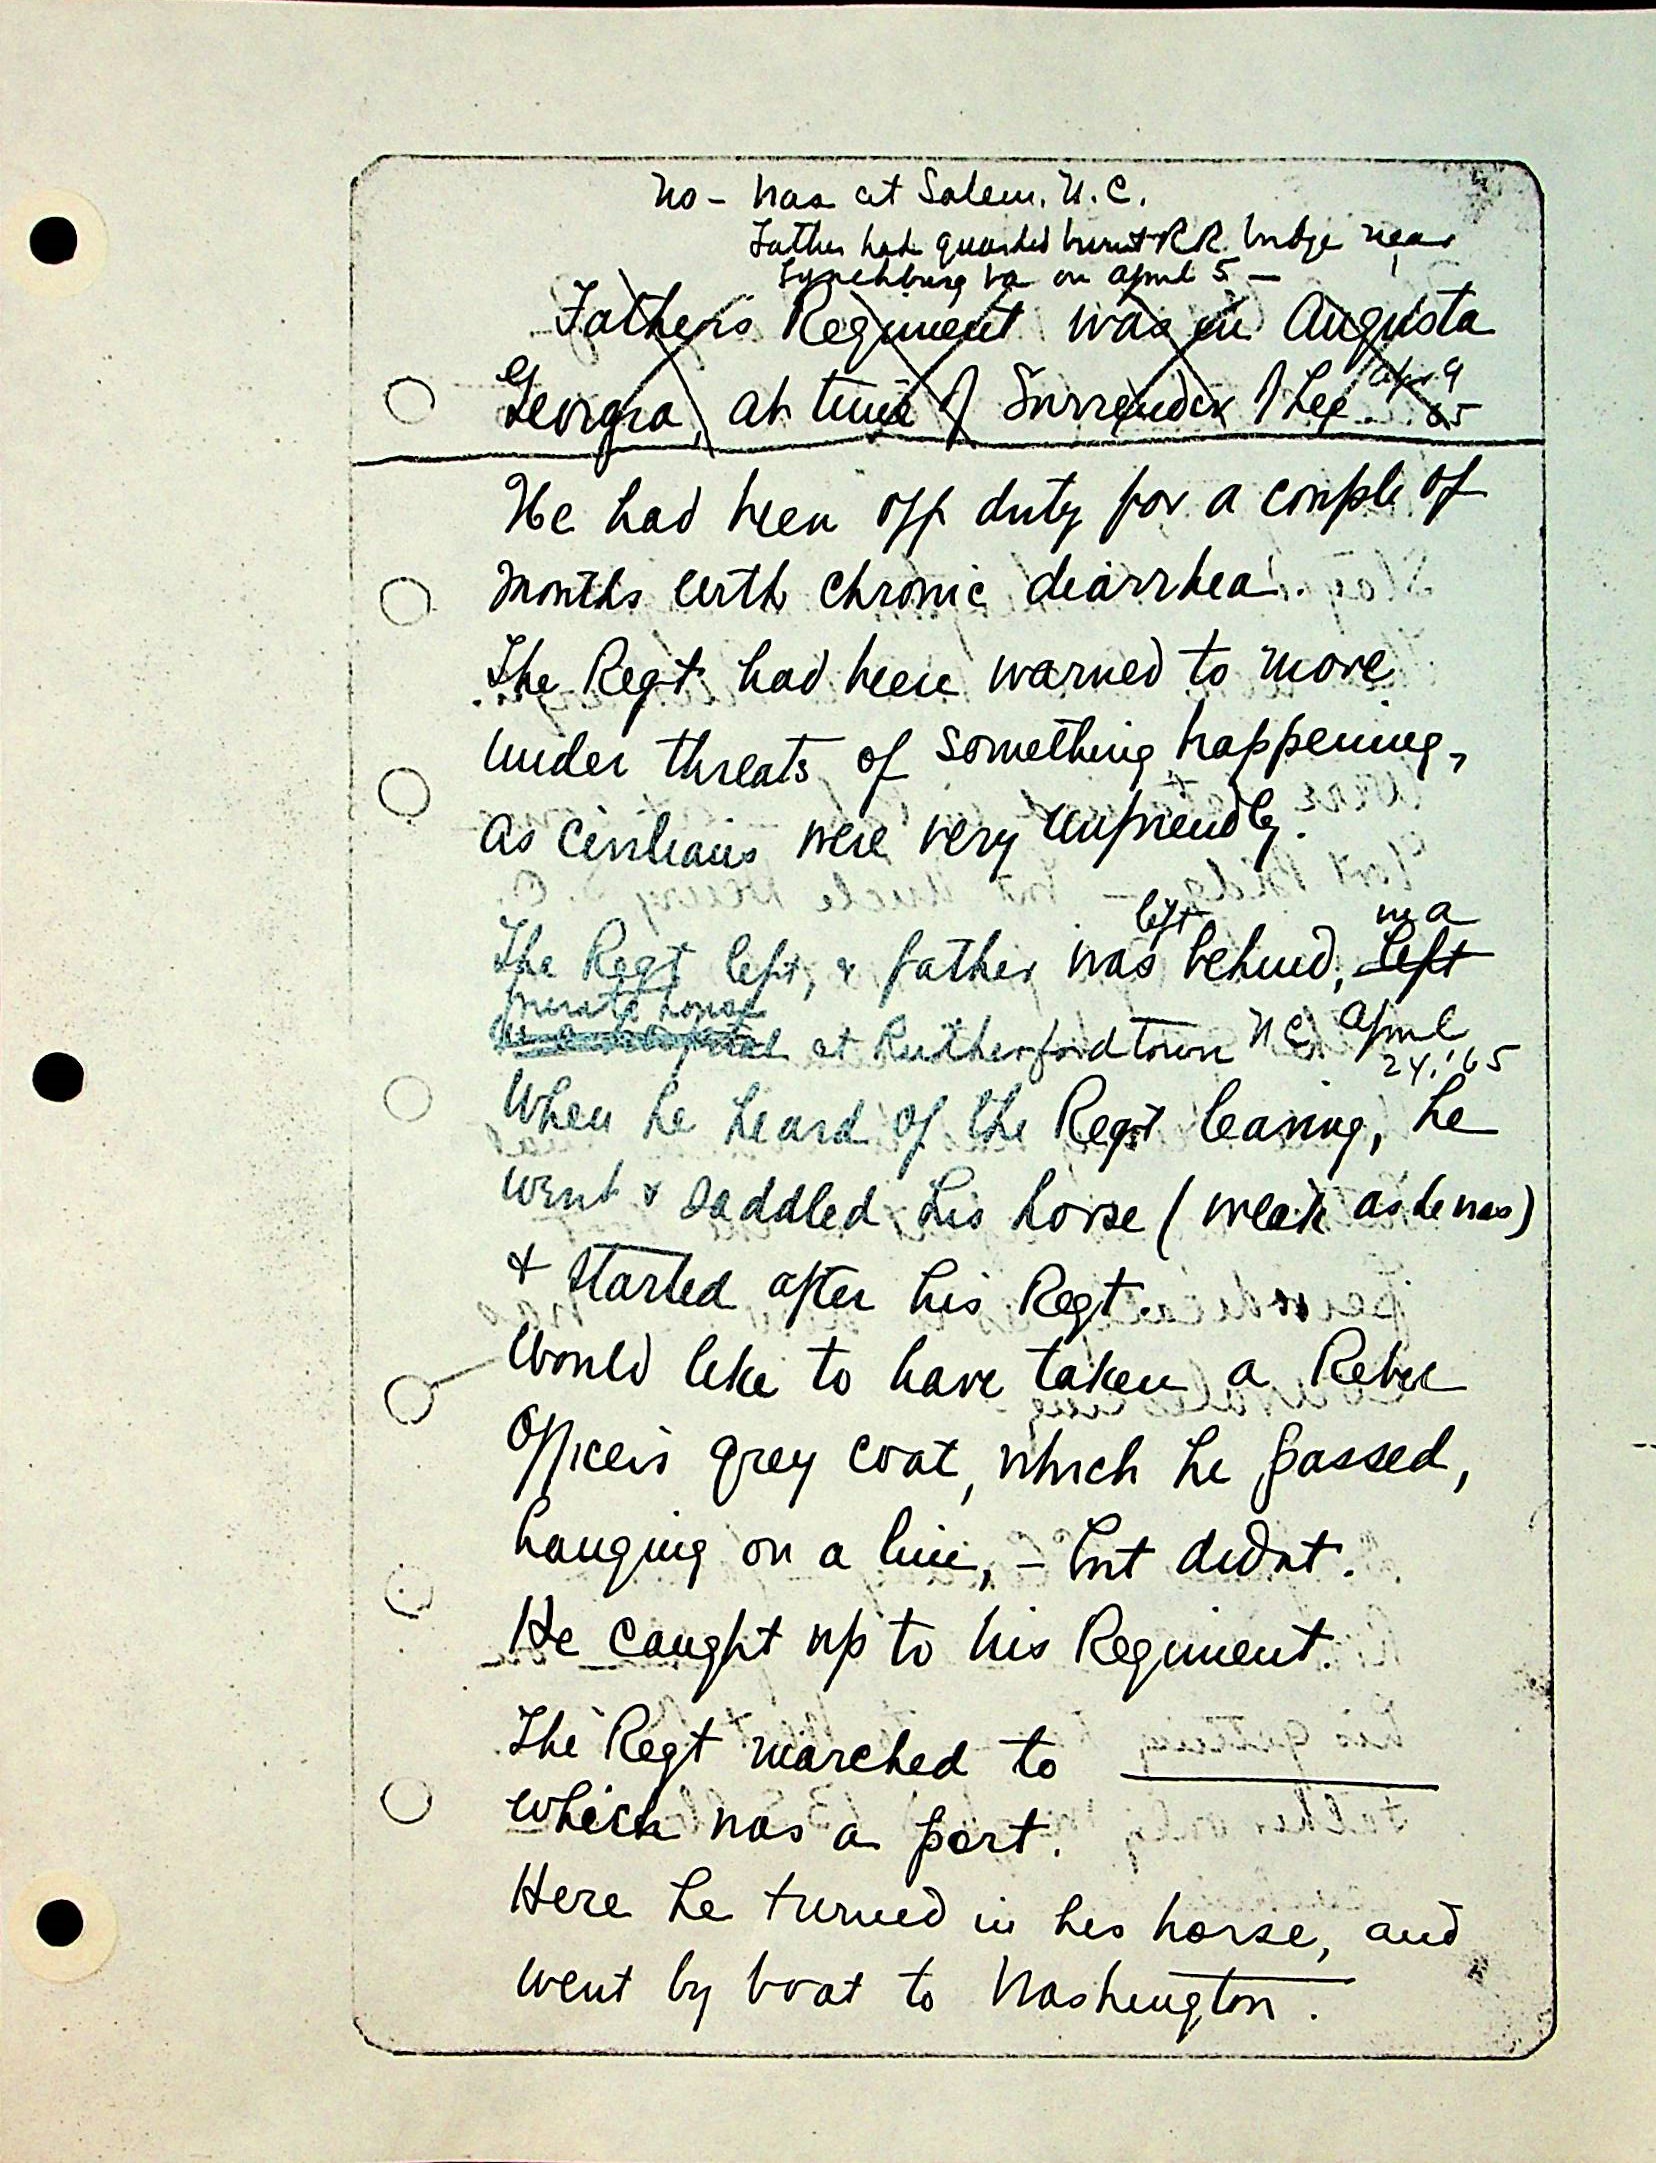 No - was at Salem. N.C.
Father had guarded burnt RR. bridge near
Lynchburg Va on April 5 —
Fathers Regiment was in Augusta
Georgia, at time of Surrender of Lee. Apr 9
65
He had been off duty for a couple of
months with chronic diarrhea.
The Regt. had been warned to move
under threats of something happening,
as civilians were very unfriendly.
left in a
The Regt left, & father was behind, left
private house
in a hospital at Rutherfordtown N C. April
24, '65
When he heard of the Regt leaving, he
went & saddled his horse (weak as he was)
& started after his Regt.
Would like to have taken a Rebel
Officers grey coat, which he passed,
hanging on a line, - but didnt.
He caught up to his Regiment.
The Regt marched to ________
which was a port.
Here he turned in his horse, and
went by boat to Washington.